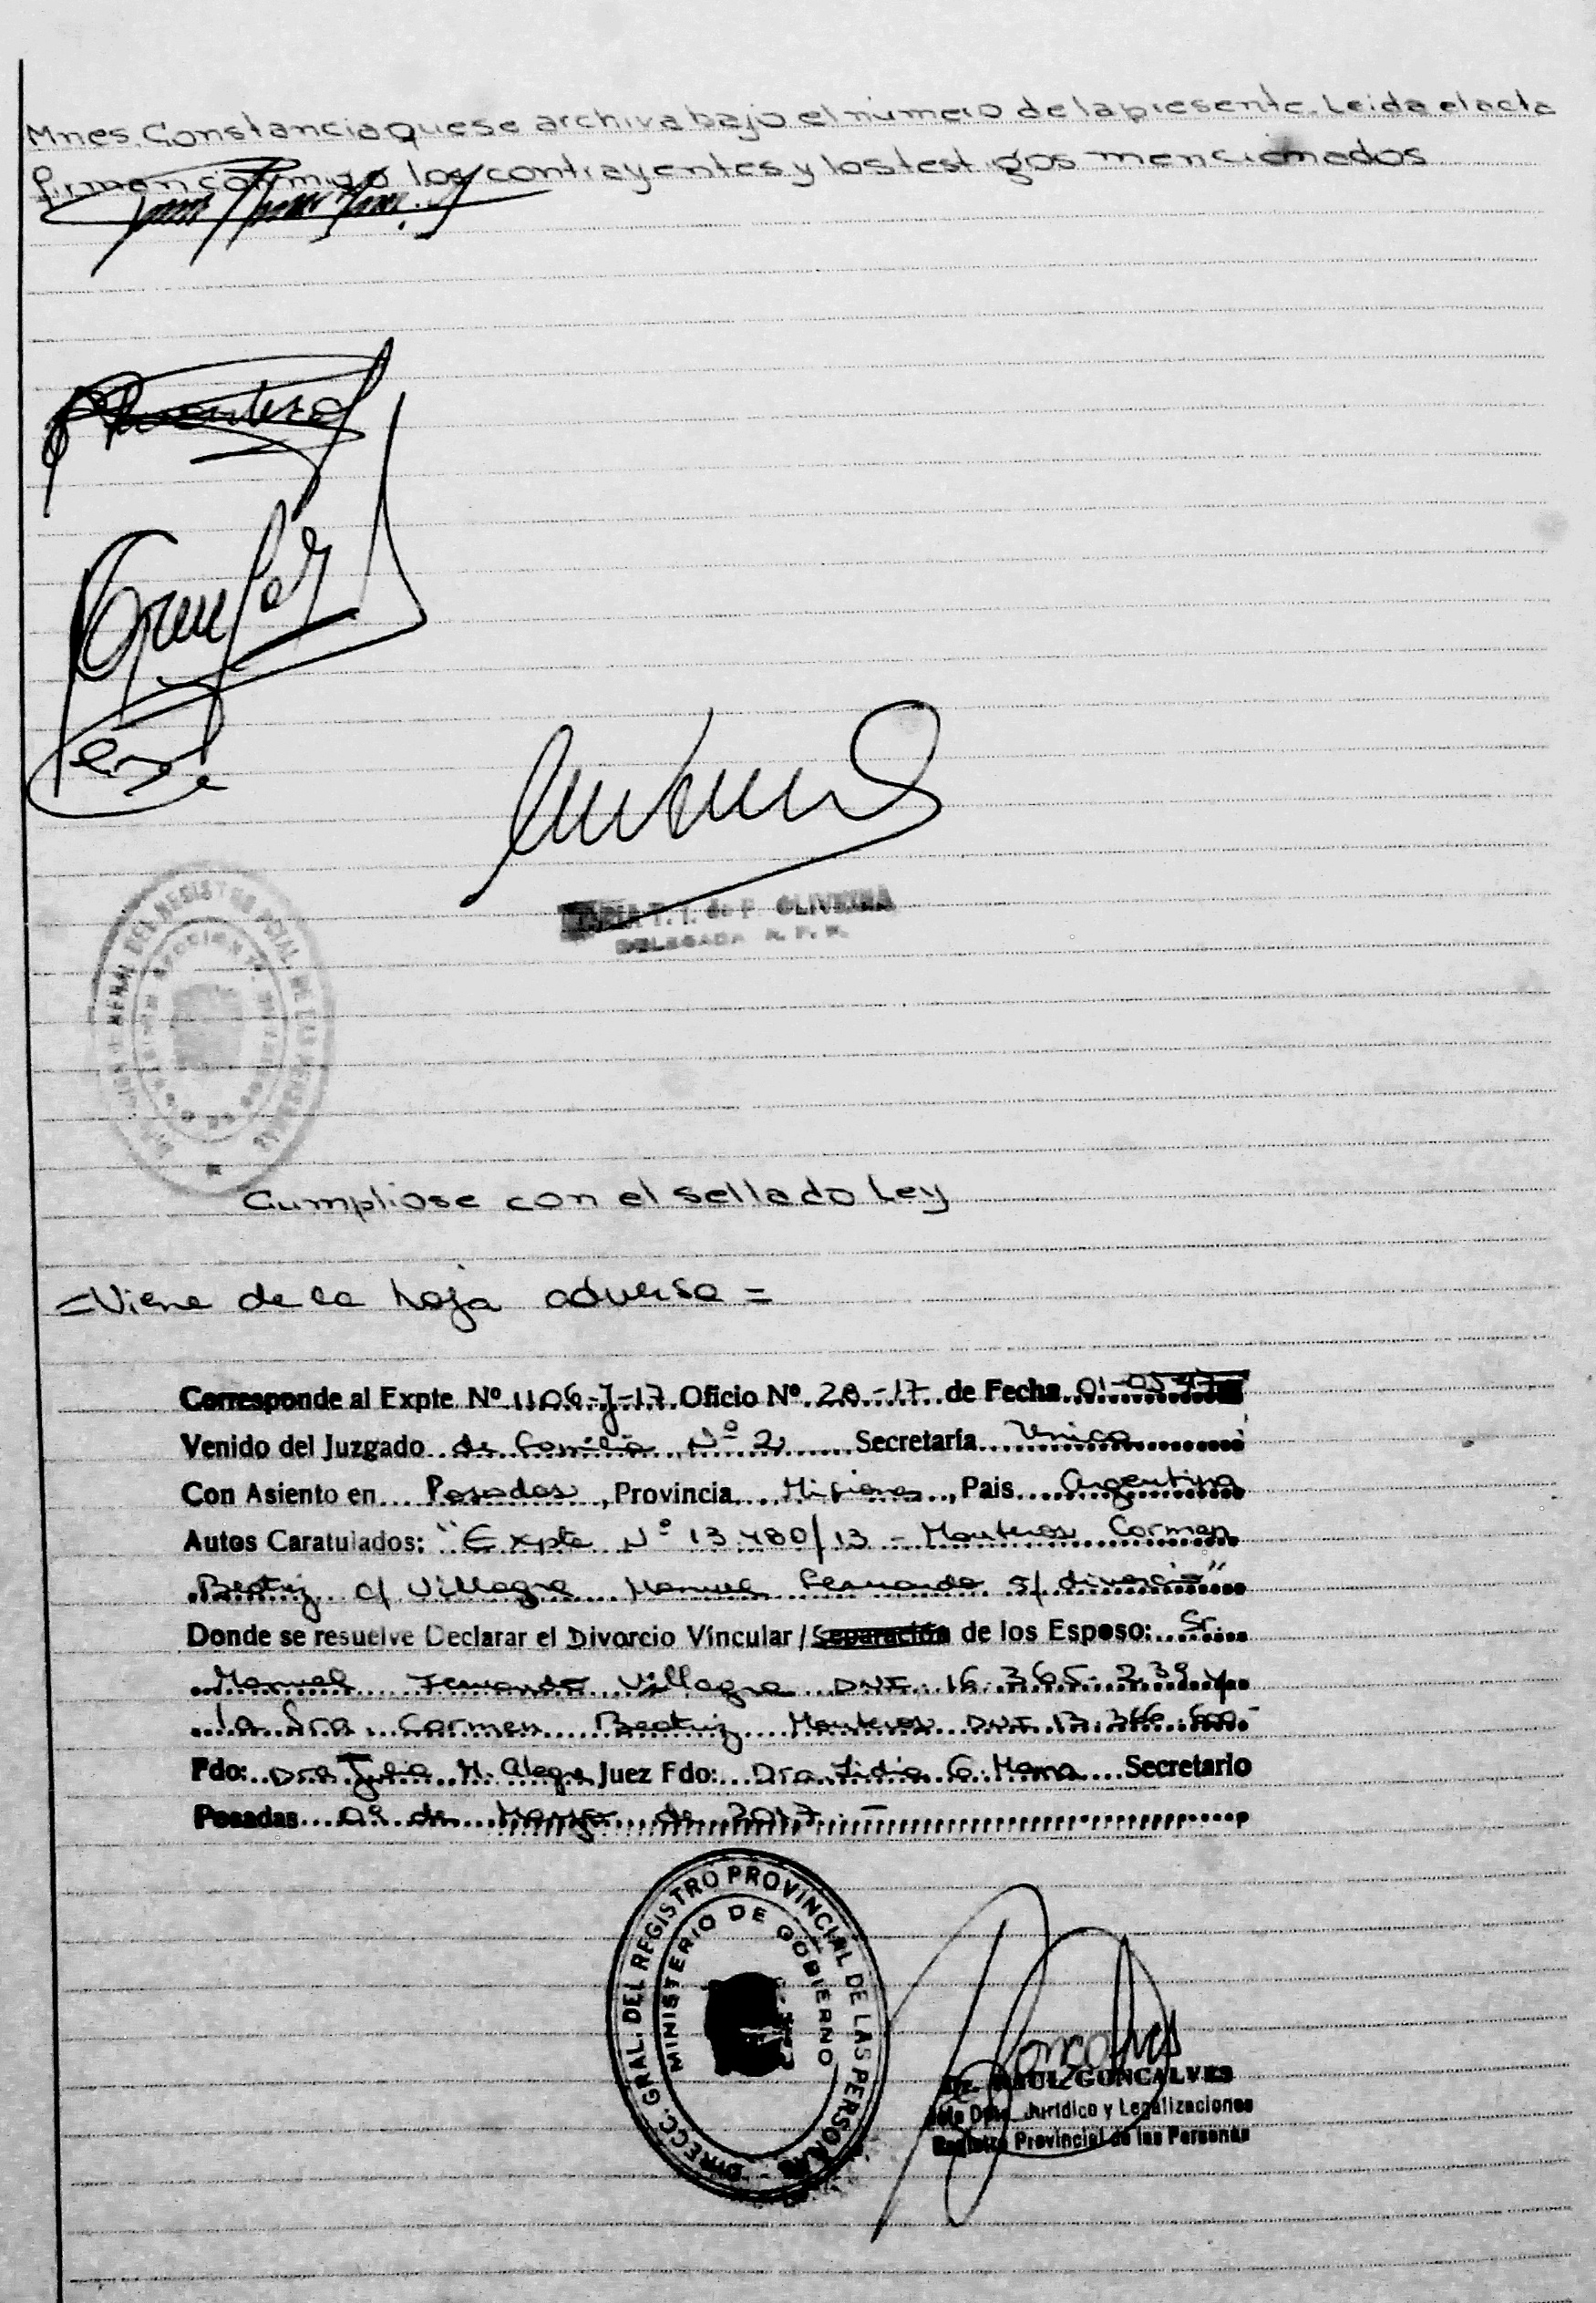 Mnes. Constancia que se archiva bajo el número de la presente. Leida el acta
firman conmigo los contrayentes y los testigos mencionados
OLIVEIRA
DELEGADA R. P. P.
Cumpliose con el sellado Ley
=Viene de la hoja adversa=
Corresponde al Expte Nº 1106-J-17 Oficio Nº 28-17 de Fecha 01-03-17
Venido del Juzgado de Familia Nº 2 Secretaría Unica
Con Asiento en Posadas, Provincia Misiones, Pais Argentina
Autos Caratulados: "Expte Nº 13480/13 - Monteros Carmen
Beatriz c/ Villagra Manuel Fernando s/ divorcio"
Donde se resuelve Declarar el Divorcio Víncular / Separación de los Esposo: Sr.
Manuel Fernando Villagra DNI 16.365.239 y
la Sra Carmen Beatriz Monteros DNI
Fdo: Dra Julia M. Alegre Juez Fdo: Dra. Lidia G. Secretario
Posadas de de 2017.-
DIRECC. GRAL. DEL REGISTRO PROVINCIAL DE LAS PERSONAS
MINISTERIO DE GOBIERNO
RAUL GONCALVES
Jefe Dpto. Jurídico y Legalizaciones
Registro Provincial de las Personas